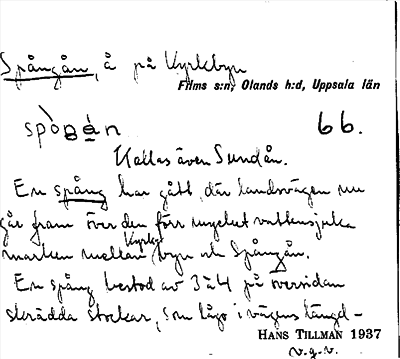 Spångån, å på Kyrkbyn
Films s:n, Olands h:d, Uppsala län
66.
Kallas även Sundån.
En spång har gått, där landsvägen nu
går fram över den förr mycket vattensjuka
marken mellan Kyrkbyn och Spångån.
En spång bestod av 3 à 4 på översidan
skrädda stockar, som lågo i vägens längd-
HANS TILLMAN 1937
v.g.v.